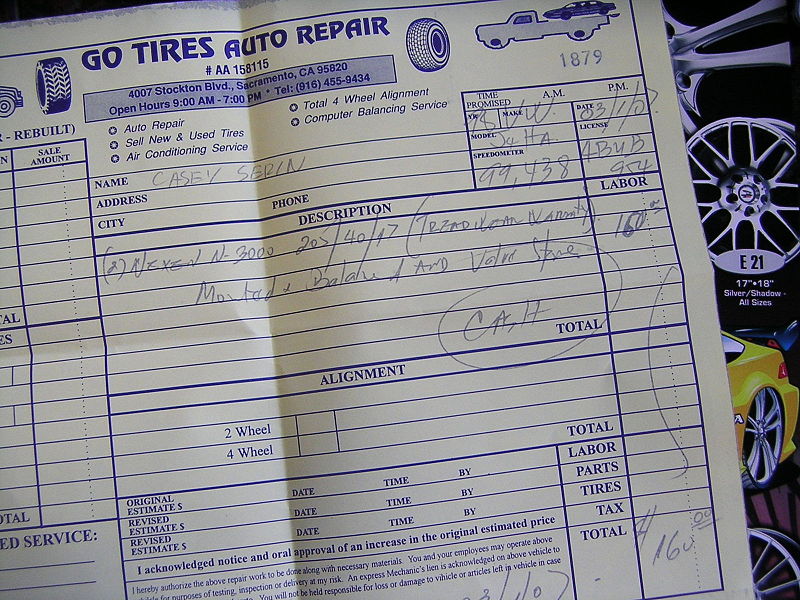 GO TIRES AUTO REPAIR
# AA 158115
4007 Stockton Blvd., Sacramento, CA 95820
Open Hours 9:00 AM - 7:00 PM * Tel: (916) 455-9434
1879
Auto Repair
Sell New & Used Tires
Air Conditioning Service
Total 4 Wheel Alignment
Computer Balancing Service
R - REBUILT)
SALE AMOUNT
TIME PROMISED A.M. P.M.
YR. MAKE V.W. DATE 03/1/07
MODEL LICENSE
SPEEDOMETER 99,438 4BUB 954
NAME CASEY SERIN
ADDRESS PHONE
CITY
DESCRIPTION LABOR
(2) NEXEN N-3000 205/40/17 (TREADWEAR Warranty) 160
Balanced AND Valve
CASH
TOTAL
ALIGNMENT
2 Wheel
4 Wheel
TOTAL
ORIGINAL ESTIMATE $ DATE TIME BY
REVISED ESTIMATE $ DATE TIME BY
REVISED ESTIMATE $ DATE TIME BY
LABOR
PARTS
TIRES
TAX
TOTAL $160.00
I acknowledged notice and oral approval of an increase in the original estimated price
I hereby authorize the above repair work to be done along with necessary materials. You and your employees may operate above
vehicle for purposes of testing, inspection or delivery at my risk. An express Mechanic's lien is acknowledged on above vehicle to
You will not be held responsible for loss or damage to vehicle or articles left in vehicle in case
TAL
ES
OTAL
ED SERVICE:
E 21
17"•18"
Silver/Shadow -
All Sizes